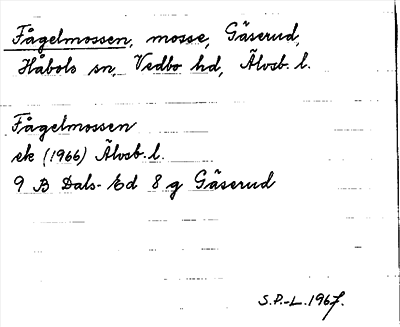 Fågelmossen, mosse, Gäserud,
Håbols sn, Vedbo hd, Älvsb. l.
Fågelmossen
ek (1966) Älvsb. l.
9 B Dals-Ed 8 g Gäserud
S.P.-L. 1967.